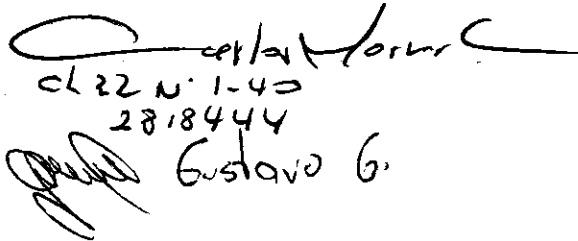 Carlos
cl 22 N. 1-40
2818444
Gustavo G.